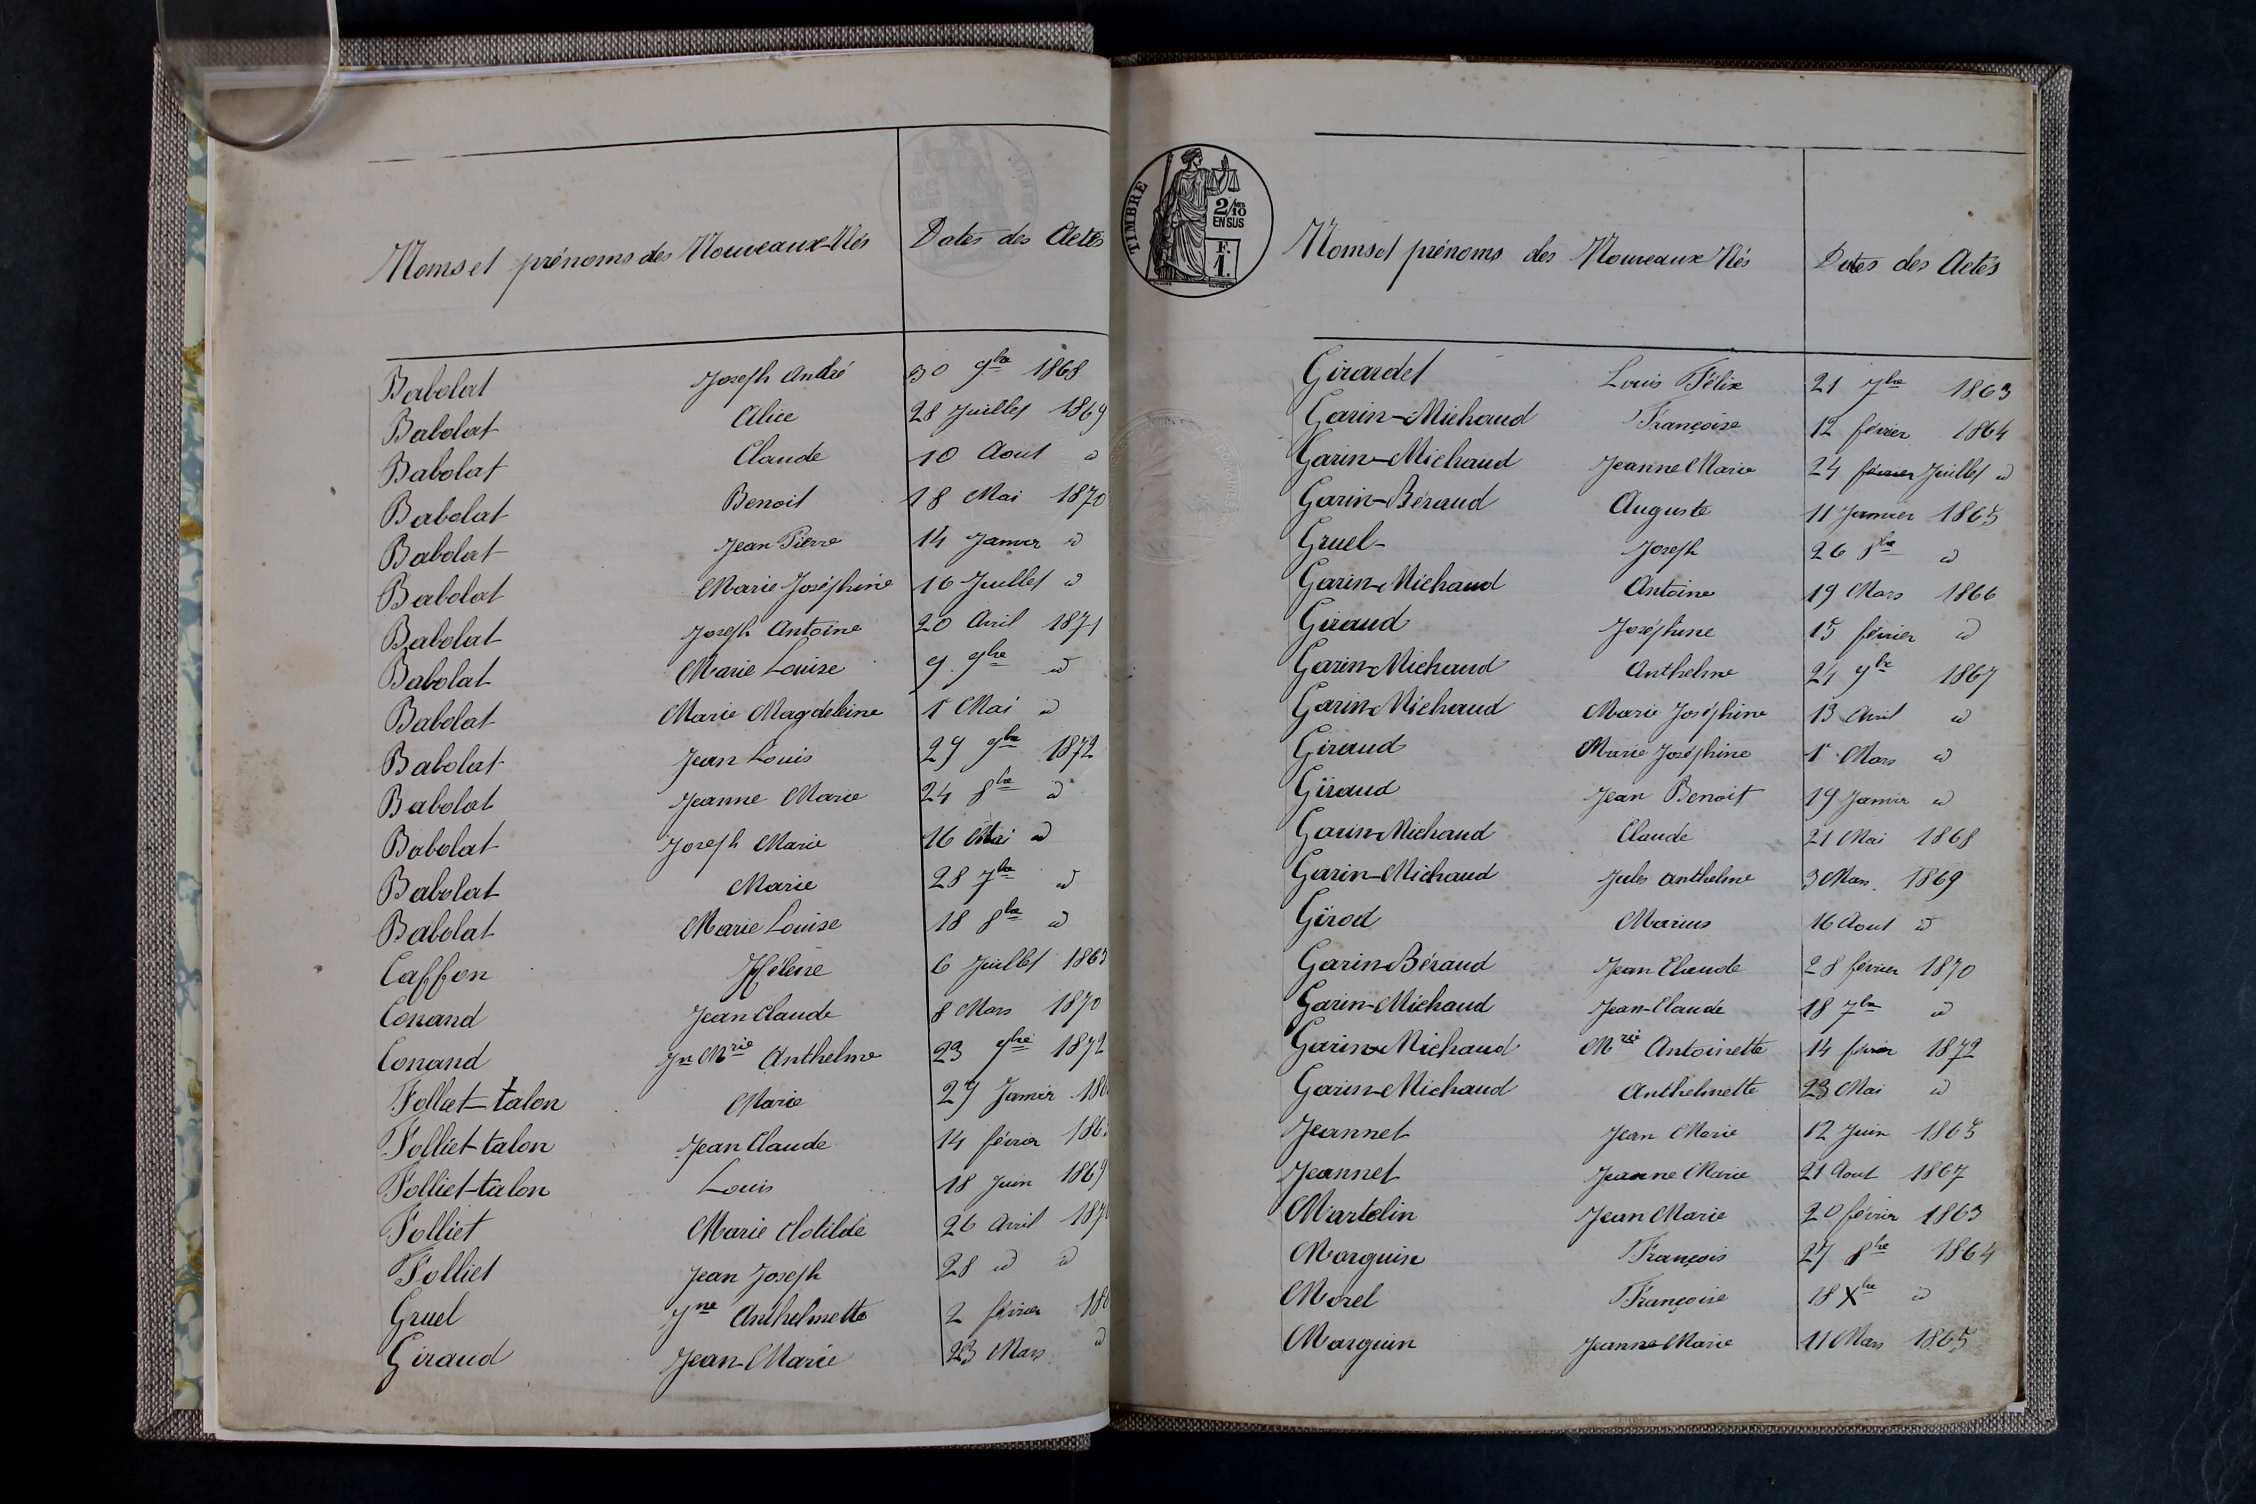 Noms et prénoms des Nouveaux-Nés Dates des Actes
Babolat Joseph André 30 9bre 1868
Babolat Alice 28 Juillet 1869
Babolat Claude 10 Aout id
Babolat Benoit 18 Mai 1870
Babolat Jean Pierre 14 Janvier id
Babolat Marie Joséphine 16 Juillet id
Babolat Joseph Antoine 20 Avril 1871
Babolat Marie Louise 9 9bre id
Babolat Marie Magdeleine 1r Mai id
Babolat Jean Louis 27 9bre 1872
Babolat Jeanne Marie 24 8bre id
Babolat Joseph Marie 16 Mai id
Babolat Marie 28 7bre id
Babolat Marie Louise 18 8bre id
Caffon Hélène 6 Juillet 1863
Conand Jean Claude 8 Mars 1870
Conand Jn Mrie Anthelme 23 9bre 1872
Folliet-talon Marie 27 Janvier 186
Folliet-talon Jean Claude 14 février 186
Folliet-talon Louis 18 Juin 1869
Folliet Marie Clotilde 26 Avril 187
Folliet Jean Joseph 28 id id
Gruel Jne Anthelmette 2 février 18
Giraud Jean-Marie 23 Mars id
TIMBRE
2/10
EN SUS
F.
1.
Noms et prénoms des Nouveaux Nés Dates des Actes
Girardet Louis Félix 21 7bre 1863
Garin-Michaud Françoise 12 février 1864
Garin-Michaud Jeanne Marie 24 février Juillet id
Garin-Béraud Auguste 11 Janvier 1865
Gruel Joseph 26 8bre id
Garin-Michaud Antoine 19 Mars 1866
Giraud Joséphine 15 février id
Garin-Michaud Anthelme 24 9bre 1867
Garin-Michaud Marie Joséphine 13 Avril id
Giraud Marie Joséphine 1r Mars id
Giraud Jean Benoit 19 Janvier id
Garin-Michaud Claude 21 Mai 1868
Garin-Michaud Jules Anthelme 3 Mars 1869
Girod Marius 16 Aout id
Garin-Béraud Jean Claude 28 février 1870
Garin-Michaud Jean-Claude 18 7bre id
Garin-Michaud Mrie Antoinette 14 février 1872
Garin-Michaud Anthelmette 23 Mai id
Jeannet Jean Marie 12 Juin 1865
Jeannet Jeanne Marie 21 Aout 1867
Martelin Jean Marie 20 février 1863
Marguin François 27 8bre 1864
Morel Françoise 18 Xbre id
Marguin Jeanne-Marie 11 Mars 1865